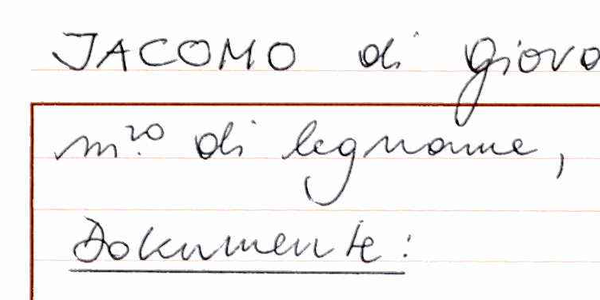 JACOMO di Giova
m.ro di legname,
Dokumente: